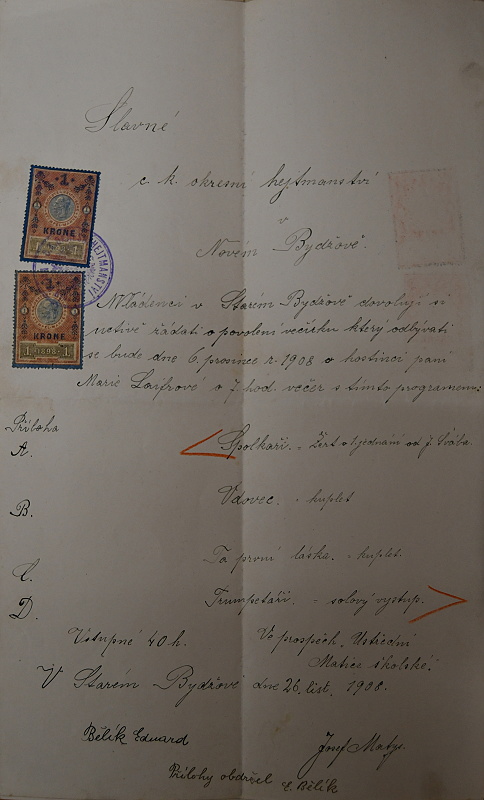 Slavné
c. k. okresní hejtmanství
v
Novém Bydžově.
1
KRONE
1 1898 1
HEJTMANSTVÍ
Mládenci v Starém Bydžově dovolují si
uctivě žádati o povolení večírku který odbývati
se bude dne 6. prosince r. 1908 v hostinci paní
Marie o 7 hod. večer s tímto programem:
Příloha
A. Spolkaři. - Žert o 1 jednání od J. Švába.
B. Vdovec. - kuplet
C. Ta první láska. - kuplet.
D. Trumpetáři. - solový výstup.
Vstupné 40 h. Ve prospěch „Ústřední
Matice školské.“
V Starém Bydžově dne 26. list. 1908.
Bělík Eduard Josef Matys.
Přílohy obdržel E. Bělík